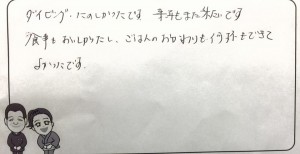 ダイビング、たのしかったです 来年もまた来たいです
お食事もおいしかったし、ごはんのおかわりも何杯もできて
よかったです。